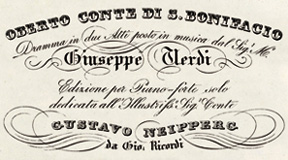 OBERTO CONTE DI S. BONIFACIO
Dramma in due Atti posto in musica dal Sig.r M.o
Giuseppe Verdi
Edizione per Piano-forte solo
dedicata all'Illustriss.o Sig.r Conte
GUSTAVO NEIPPERG
da Gio. Ricordi